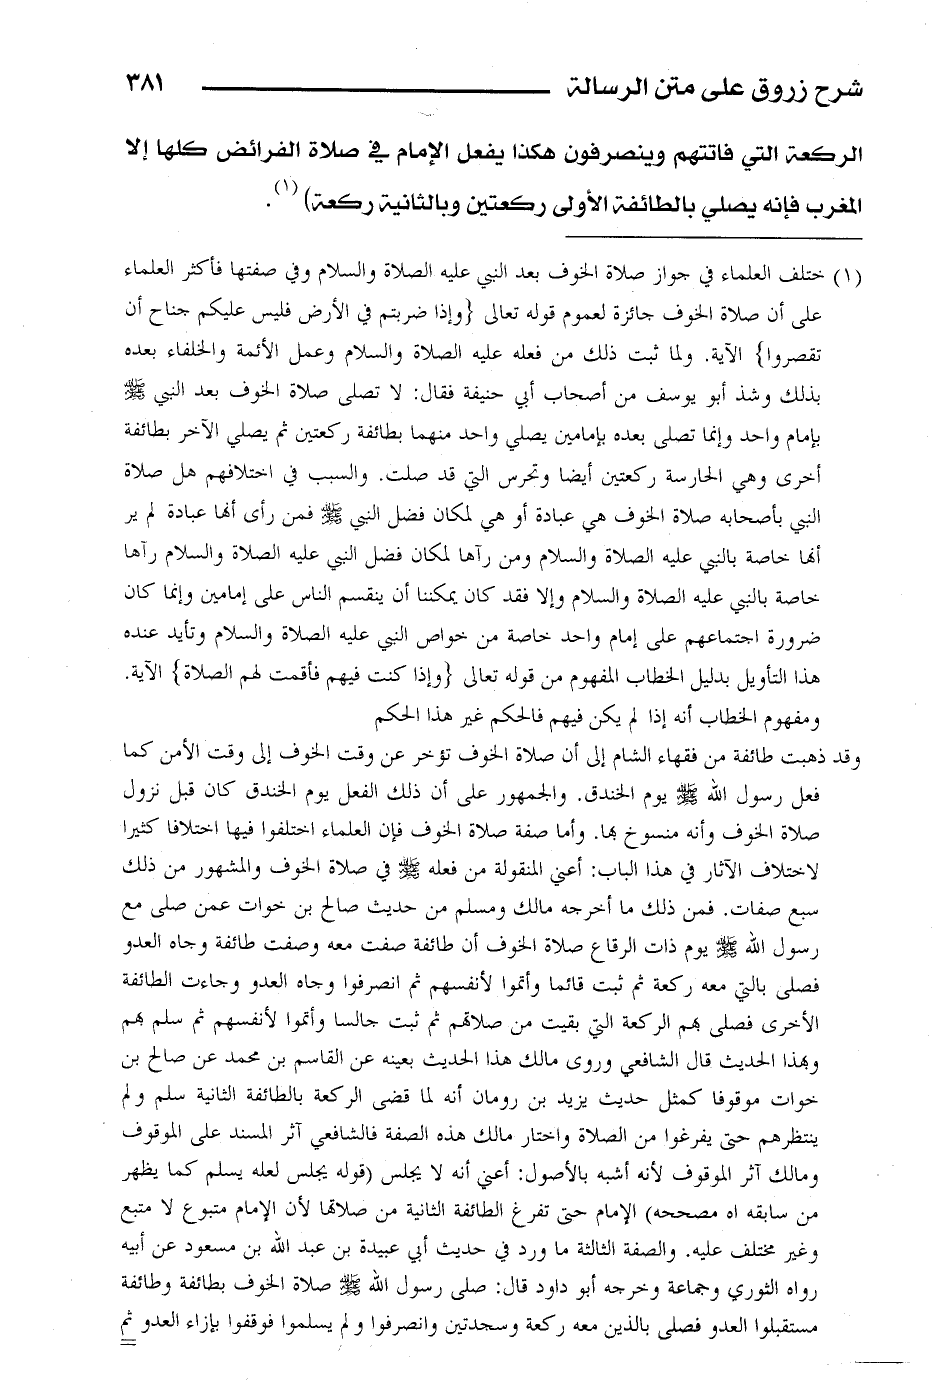 شرح زروق على متن الرسالة ٣٨١
الركعة التي فاتتهم وينصرفون هكذا يفعل الإمام في صلاة الفرائض كلها إلا
المغرب فإنه يصلي بالطائفة الأولى ركعتين وبالثانية ركعة) (١).
(١) ختلف العلماء في جواز صلاة الخوف بعد النبي عليه الصلاة والسلام وفي صفتها فأكثر العلماء
على أن صلاة الخوف جائزة لعموم قوله تعالى {وإذا ضربتم في الأرض فليس عليكم جناح أن
تقصروا} الآية. ولما ثبت ذلك من فعله عليه الصلاة والسلام وعمل الأئمة والخلفاء بعده
بذلك وشذ أبو يوسف من أصحاب أبي حنيفة فقال: لا تصلى صلاة الخوف بعد النبي ﷺ
بإمام واحد وإنما تصلى بعده بإمامين يصلي واحد منهما بطائفة ركعتين ثم يصلي الآخر بطائفة
أخرى وهي الحارسة ركعتين أيضا وتحرس التي قد صلت. والسبب في اختلافهم هل صلاة
النبي بأصحابه صلاة الخوف هي عبادة أو هي لمكان فضل النبي ﷺ فمن رأى أنها عبادة لم ير
أنها خاصة بالنبي عليه الصلاة والسلام ومن رآها لمكان فضل النبي عليه الصلاة والسلام رآها
خاصة بالنبي عليه الصلاة والسلام وإلا فقد كان يمكننا أن ينقسم الناس على إمامين وإنما كان
ضرورة اجتماعهم على إمام واحد خاصة من خواص النبي عليه الصلاة والسلام وتأيد عنده
هذا التأويل بدليل الخطاب المفهوم من قوله تعالى {وإذا كنت فيهم فأقمت لهم الصلاة} الآية.
ومفهوم الخطاب أنه إذا لم يكن فيهم فالحكم غير هذا الحكم
وقد ذهبت طائفة من فقهاء الشام إلى أن صلاة الخوف تؤخر عن وقت الخوف إلى وقت الأمن كما
فعل رسول الله ﷺ يوم الخندق. والجمهور على أن ذلك الفعل يوم الخندق كان قبل نزول
صلاة الخوف وأنه منسوخ بها. وأما صفة صلاة الخوف فإن العلماء اختلفوا فيها اختلافا كثيرا
لاختلاف الآثار في هذا الباب: أعني المنقولة من فعله ﷺ في صلاة الخوف والمشهور من ذلك
سبع صفات. فمن ذلك ما أخرجه مالك ومسلم من حديث صالح بن خوات عمن صلى مع
رسول الله ﷺ يوم ذات الرقاع صلاة الخوف أن طائفة صفت معه وصفت طائفة وجاه العدو
فصلى بالتي معه ركعة ثم ثبت قائما وأتموا لأنفسهم ثم انصرفوا وجاه العدو وجاءت الطائفة
الأخرى فصلى بهم الركعة التي بقيت من صلاتهم ثم ثبت جالسا وأتموا لأنفسهم ثم سلم بهم
وبهذا الحديث قال الشافعي وروى مالك هذا الحديث بعينه عن القاسم بن محمد عن صالح بن
خوات موقوفا كمثل حديث يزيد بن رومان أنه لما قضى الركعة بالطائفة الثانية سلم ولم
ينتظرهم حتى يفرغوا من الصلاة واختار مالك هذه الصفة فالشافعي آثر المسند على الموقوف
ومالك آثر الموقوف لأنه أشبه بالأصول: أعني أنه لا يجلس (قوله يجلس لعله يسلم كما يظهر
من سابقه اه مصححه) الإمام حتى تفرغ الطائفة الثانية من صلاتها لأن الإمام متبوع لا متبع
وغير مختلف عليه. والصفة الثالثة ما ورد في حديث أبي عبيدة بن عبد الله بن مسعود عن أبيه
رواه الثوري وجماعة وخرجه أبو داود قال: صلى رسول الله ﷺ صلاة الخوف بطائفة وطائفة
مستقبلوا العدو فصلى بالذين معه ركعة وسجدتين وانصرفوا و لم يسلموا فوقفوا بإزاء العدو ثم